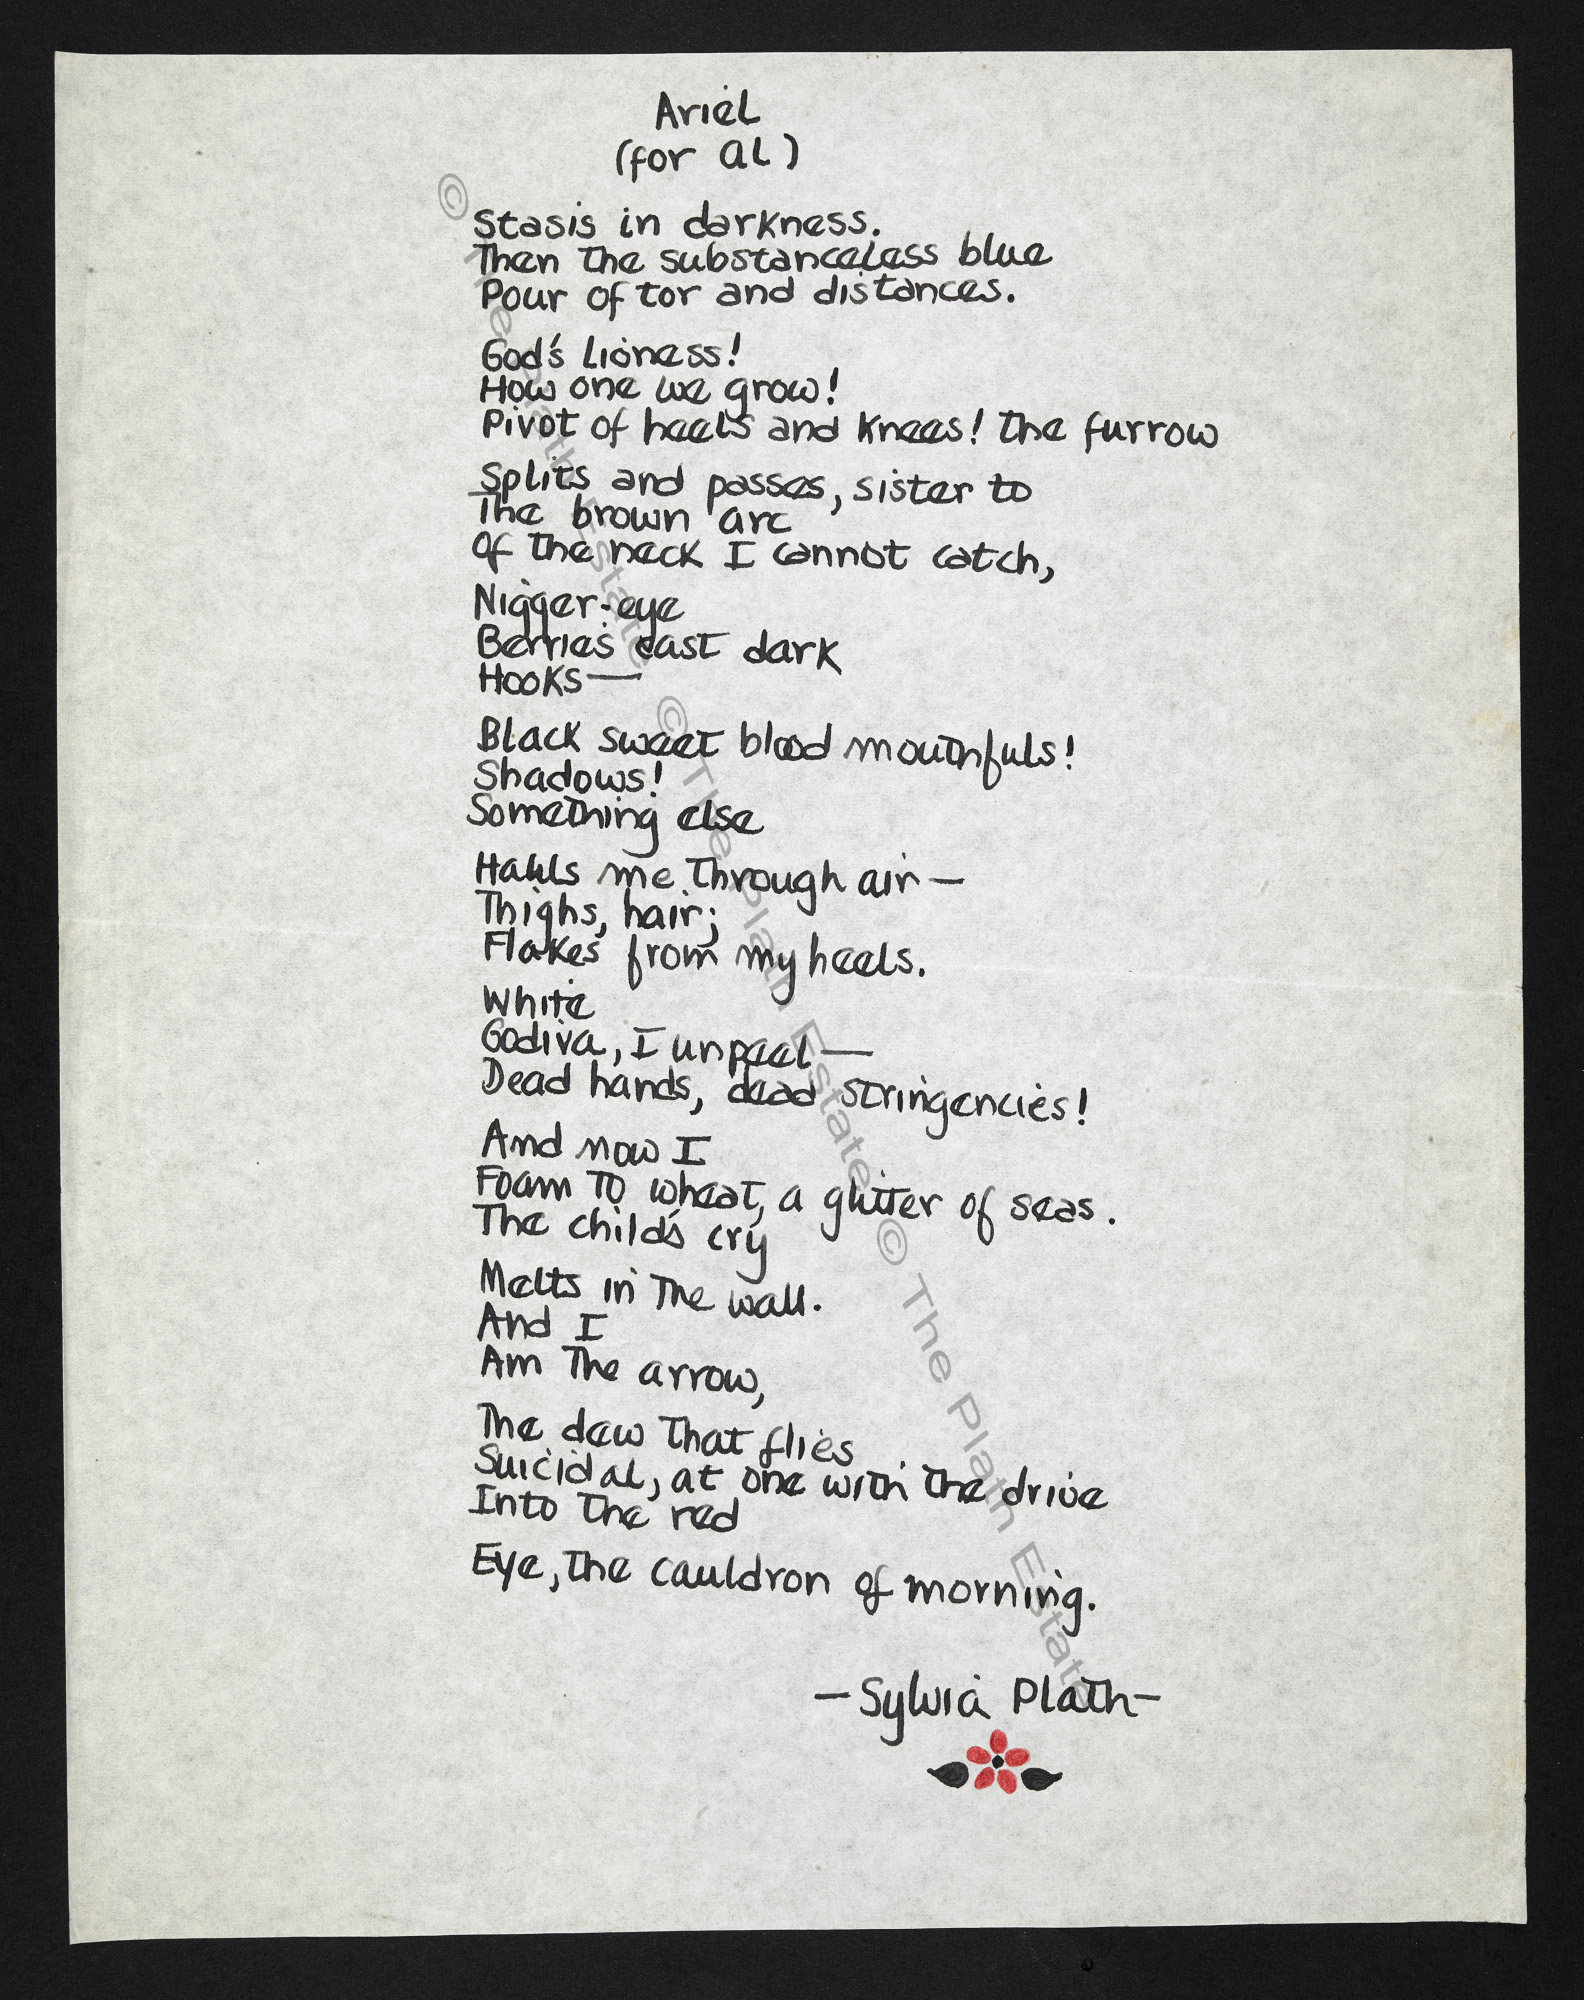 Ariel
(for al)
Stasis in darkness.
Then the substanceless blue
Pour of tor and distances.
God's lioness!
How one we grow!
Pivot of heels and knees! the furrow
Splits and passes, sister to
The brown arc
Of the neck I cannot catch,
Nigger-eye
Berries cast dark
Hooks—
Black sweet blood mouthfuls!
Shadows!
Something else
Hauls me through air—
Thighs, hair;
Flakes from my heels.
White
Godiva, I unpeel—
Dead hands, dead stringencies!
And now I
Foam to wheat, a glitter of seas.
The child's cry
Melts in the wall.
And I
Am the arrow,
The dew that flies
Suicidal, at one with the drive
Into the red
Eye, the cauldron of morning.
—Sylvia Plath—
© The Plath Estate © The Plath Estate © The Plath Estate